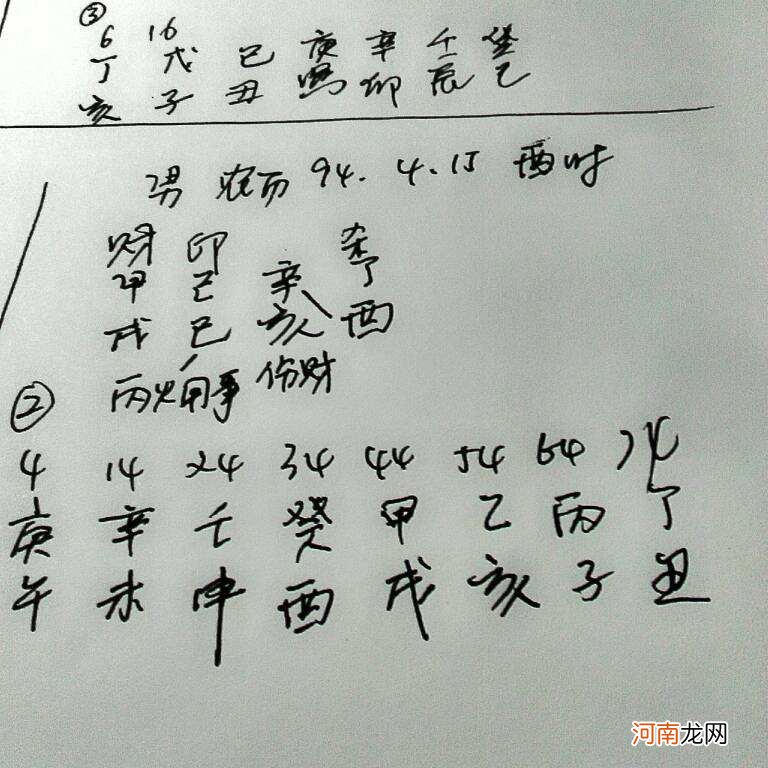 ③
6 16
丁 戊 己 庚 辛 壬 癸
亥 子 丑 寅 卯 辰 巳
男 农历 94. 4. 15 酉时
财 印 杀
甲 己 辛 丁
戌 巳 亥 酉
丙火用事 伤财
②
4 14 24 34 44 54 64 74
庚 辛 壬 癸 甲 乙 丙 丁
午 未 申 酉 戌 亥 子 丑
河南龙网